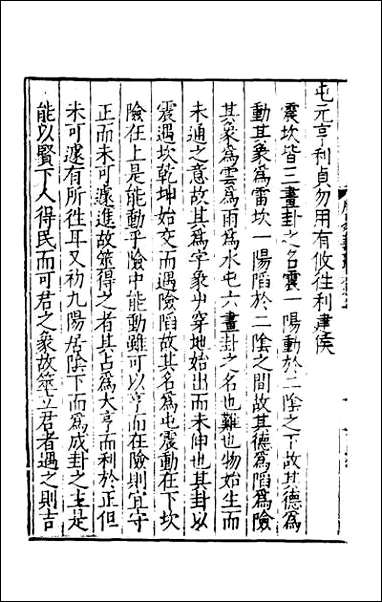 屯元亨利貞勿用有攸往利建侯
震坎皆三畫卦之名震一陽動於二陰之下故其德爲
動其象爲雷坎一陽陷於二陰之間故其德爲陷爲險
其象爲雲爲雨爲水屯六畫卦之名也難也物始生而
未通之意故其爲字象屮穿地始出而未伸也其卦以
震遇坎乾坤始交而遇險陷故其名爲屯震動在下坎
險在上是能動乎險中能動雖可以亨而在險則宜守
正而未可遽進故筮得之者其占爲大亨而利於正但
未可遽有所往耳又初九陽居陰下而爲成卦之主是
能以賢下人得民而可君之象故筮立君者遇之則吉